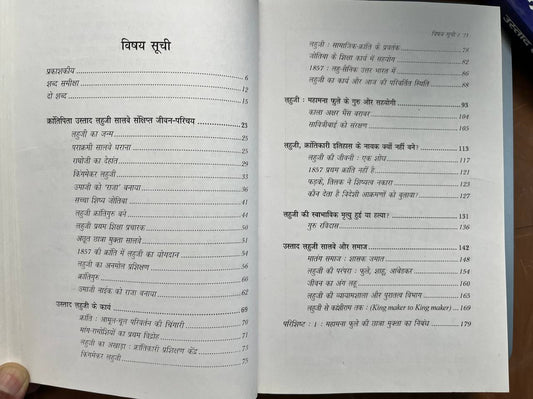 विषय सूची
प्रकाशकीय 6
शब्द समीक्षा 12
दो शब्द 15
क्रांतिपिता उस्ताद लहुजी साळवे संक्षिप्त जीवन-परिचय 23
लहुजी का जन्म 25
पराक्रमी साळवे घराना 27
राघोजी का देहांत 29
किंगमेकर लहुजी 33
उमाजी को 'राजा' बनाया 36
सच्चा शिष्य जोतिबा 41
लहुजी क्रांतिगुरु बने 44
लहुजी प्रथम शिक्षा प्रचारक
अछूत छात्रा मुक्ता साळवे
1857 की क्रांति में लहुजी का योगदान 54
लहुजी का अनमोल प्रशिक्षण 56
क्रांतिगुरु 60
उमाजी नाईक को राजा बनाया 62
उस्ताद लहुजी के कार्य 69
क्रांति : आमूल-चूल परिवर्तन की चिंगारी 70
मांग-रामोशियों का प्रथम विद्रोह 71
लहुजी का अखाड़ा : क्रांतिकारी प्रशिक्षण केंद्र 73
किंगमेकर लहुजी 75
विषय सूची / 11
लहुजी : सामाजिक-क्रांति के प्रवर्तक 78
जोतिबा के शिक्षा कार्य में सहयोग 82
1857 : लहु-सैनिक उत्तर भारत में 86
लहुजी का कार्य और आज की परिवर्तित स्थिति 88
लहुजी : महामना फुले के गुरु और सहयोगी 93
काला अक्षर भैंस बराबर 98
सावित्रीबाई को संरक्षण 105
लहुजी, क्रांतिकारी इतिहास के नायक क्यों नहीं बने? 113
लहुजी की जीवनी : एक शोध 117
1857 प्रथम क्रांति नहीं है 121
फड़के, तिलक ने शिष्यत्व नकारा 123
कौन देता है विदेशी आक्रमणों को बुलावा? 127
लहुजी की स्वाभाविक मृत्यु हुई या हत्या? 131
गुरु रविदास 136
उस्ताद लहुजी साळवे और समाज 142
मातंग समाज : शासक जमात 148
लहुजी की परंपरा : फुले, शाहू, आंबेडकर 154
जीवन का अंग लहू 158
लहुजी की व्यायामशाला और पुरातत्व विभाग 165
लहुजी से कांशीराम तक : (King maker to King maker) 169
परिशिष्ट : 1 : महामना फुले की छात्रा मुक्ता का निबंध 179
उस्ताद